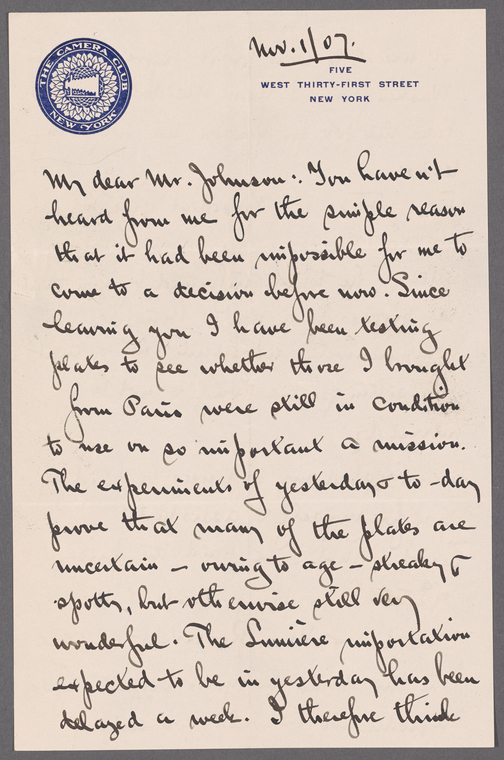 THE CAMERA CLUB
NEW YORK
Nov. 1/07.
FIVE
WEST THIRTY-FIRST STREET
NEW YORK
My dear Mr. Johnson: You haven't
heard from me for the simple reason
that it had been impossible for me to
come to a decision before now. Since
leaving you I have been testing
plates to see whether those I brought
from Paris were still in condition
to use on so important a mission.
The experiments of yesterday & to-day
prove that many of the plates are
uncertain – owing to age – streaky &
spotty, but otherwise still very
wonderful. The Lumière importation
expected to be in yesterday has been
delayed a week. I therefore think